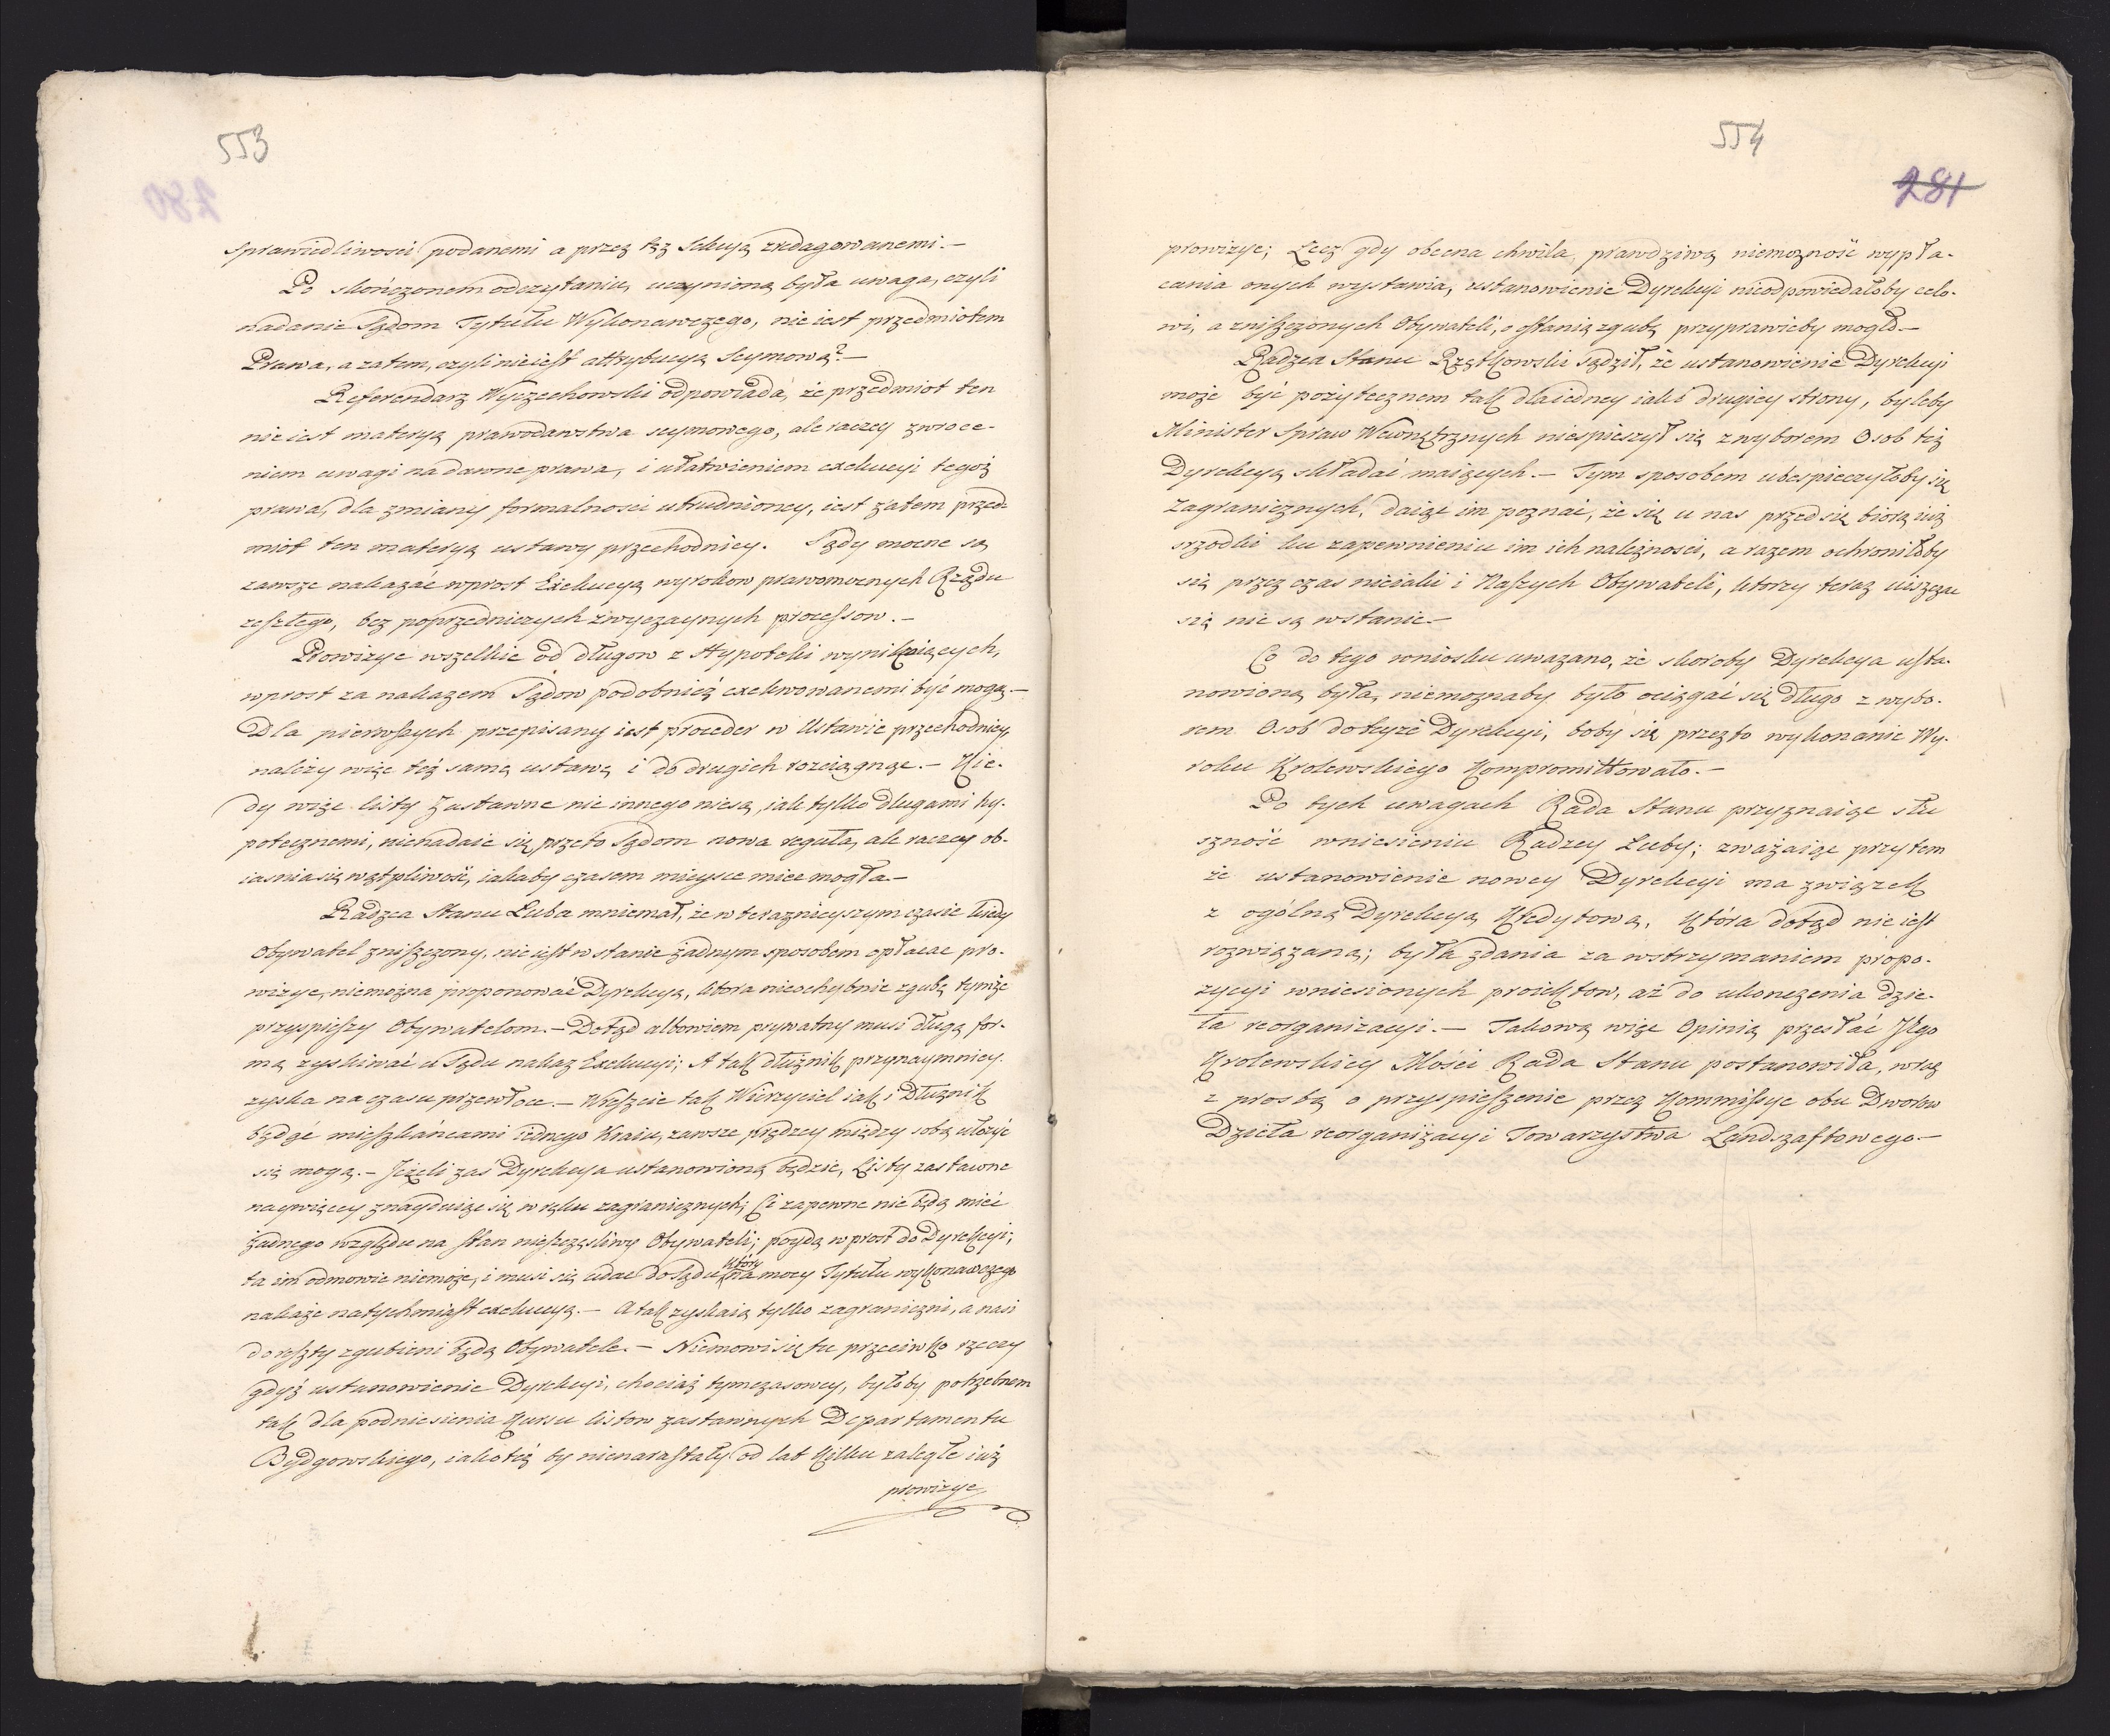 553
280
sprawiedliwości podanemi a przez tęż Sekcyą zredagowanemi.—
Po skończonem odczytaniu, uczynioną była uwaga, czyli
nadanie Sądom Tytułu Wykonawczego, nie iest przedmiotem
Prawa, a zatem, czyli nieiest attrybucyą Seymową?—
Referendarz Wyczechowski odpowiada, że przedmiot ten
nie iest materyą prawodawstwa seymowego, ale raczey zwroce-
niem uwagi na dawne prawa, i ułatwieniem exekucyi tegoż
prawa, dla zmiany formalności utrudnioney, iest zatem przed-
miot ten materyą ustawy przechodniey. Sądy mocne są
zawsze nakazać wprost Exekucyą wyrokow prawomocnych Rządu
zeszłego, bez poprzedniczych zwyczaynych processow.—
Prowizye wszelkie od długow z Hypoteki wynikaiących,
wprost za nakazem Sądow podobnież exekwowanemi być mogą.—
Dla pierwszych przepisany iest proceder w Ustawie przechodniey,
należy więc też samą ustawę i do drugich rozciągnąć.— Kie-
dy więc listy Zastawne nic innego niesą, iak tylko długami hy-
potecznemi, nienadaie się przeto Sądom nowa reguła, ale raczey ob-
iasnia się wątpliwość, iakaby czasem mieysce miec mogła—
Radzca Stanu Łuba mniemał, że w teraznieyszym czasie kiedy
Obywatel zniszczony, nie iest w stanie żadnym sposobem opłacac pro-
wizye, niemożna proponować Dyrekcyą, ktora nieochybnie zgubę tymże
przyspieszy Obywatelom.— Dotąd albowiem prywatny musi długą for-
mą zyskiwać u Sądu nakaz Exekucyi; A tak dłużnik przynaymniey
zyska na czasu przewłoce.— Wreszcie tak Wierzyciel iak i Dłużnik
będąc mieszkańcami iednego Kraiu, zawsze prędzey między sobą ułożyć
się mogą.— Jeżeli zaś Dyrekcya ustanowioną będzie, Listy zastawne
naywięcey znayduiące się w ręku zagranicznych; Ci zapewne nie będą mieć
żadnego względu na stan nieszczęśliwy Obywateli; poydą wprost do Dyrekcyi;
ta im odmowic niemoże, i musi się udac do Sądu, który na mocy Tytułu wykonawczego
nakaże natychmiast exekucyą.— A tak zyskaią tylko zagraniczni, a nasi
do reszty zgubieni będą Obywatele.— Niemowi się tu przeciwko rzeczy
gdyż ustanowienie Dyrekcyi, chociaż tymczasowey, byłoby potrzebnem
tak dla podniesienia Kursu listow zastawnych Departamentu
Bydgowskiego, iakoteż by nienarastały od lat Kilku zaległe iuż
prowizye

554
281
prowizye; Lecz gdy obecna chwila, prawdziwą niemożność wypła-
cania onych wystawia, ustanowienie Dyrekcyi nieodpowiedałoby celo-
wi, a zniszczonych Obywateli, o ostanią zgubę przyprawićby mogło.—
Radzca Stanu Rzętkowski sądził, że ustanowienie Dyrekcyi
może być pożytecznem tak dla iedney iako drugiey strony, byleby
Minister Spraw Wewnętrznych niespieszył się z wyborem Osob też
Dyrekcyą składać maiących.— Tym sposobem ubespieczyłoby się
Zagranicznych, daiąc im poznać, że się u nas przedsię biorą iuż
srzodki ku zapewnieniu im ich należności, a razem ochroniłoby
się przez czas nieiaki i Naszych Obywateli, ktorzy teraz uiszczac
się nie są wstanie.—
Co do tego wniosku uważano, że skoroby Dyrekcya usta-
nowioną była, niemoznaby było ociągać się długo z wybo-
rem Osob do teyże Dyrekcyi, boby się przez to wykonanie Wy-
roku Krolewskiego Kompromittowało.—
Po tych uwagach Rada Stanu przyznaiąc słu
szność wniesieniu Radzcy Łuby; zważaiąc przytem
że ustanowienie nowey Dyrekcyi ma związek
z ogólną Dyrekcyą Kredytową, Która dotąd nie iest
rozwiązaną; była zdania za wstrzymaniem propo-
zycyi wniesionych proiektow, aż do ukonczenia dzie-
ła reorganizacyi.— Takową więc Opinią przesłać Jego
Krolewskiey Mości Rada Stanu postanowiła, wraz
z prosbą o przyspieszenie przez Kommissye obu Dworow
Dzieła reorganizacyi Towarzystwa Landszaftowego.—